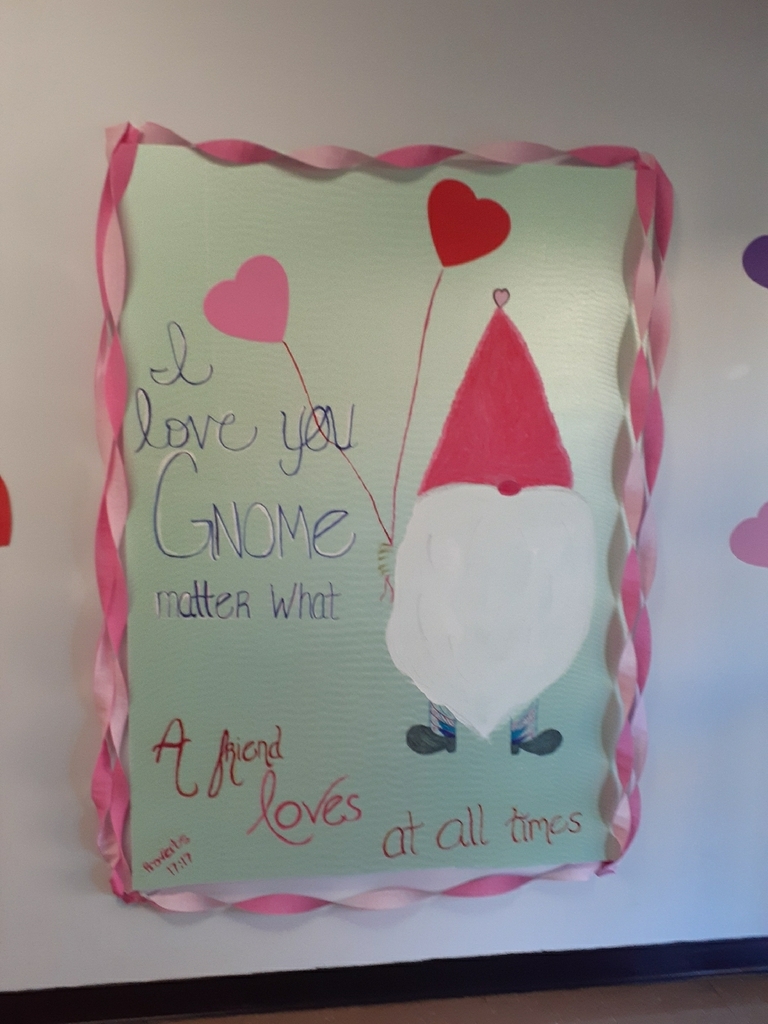 I
love you
GNOME
matter what
A friend
loves
at all times
Proverbs
17:17